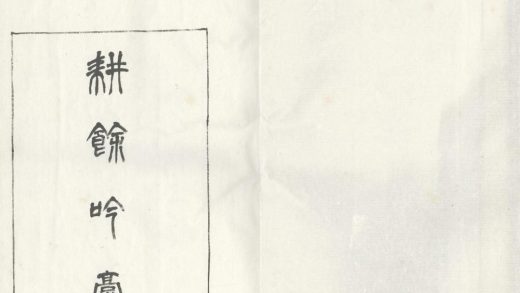 耕餘吟